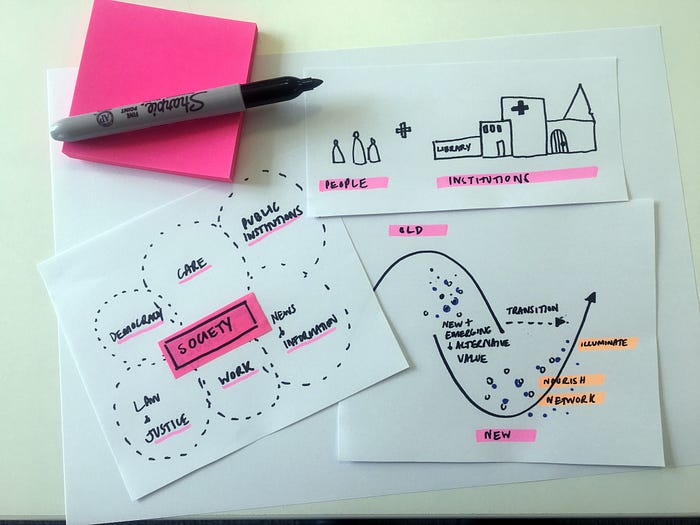 Sharpie.
FINE
POINT
AP
LIBRARY
PEOPLE
+
INSTITUTIONS
PUBLIC
INSTITUTIONS
CARE
DEMOCRACY
SOCIETY
NEWS
&
INFORMATION
WORK
LAW
&
JUSTICE
OLD
NEW +
EMERGING
+ ALTERNATIVE
VALUE
TRANSITION
ILLUMINATE
NOURISH
NETWORK
NEW